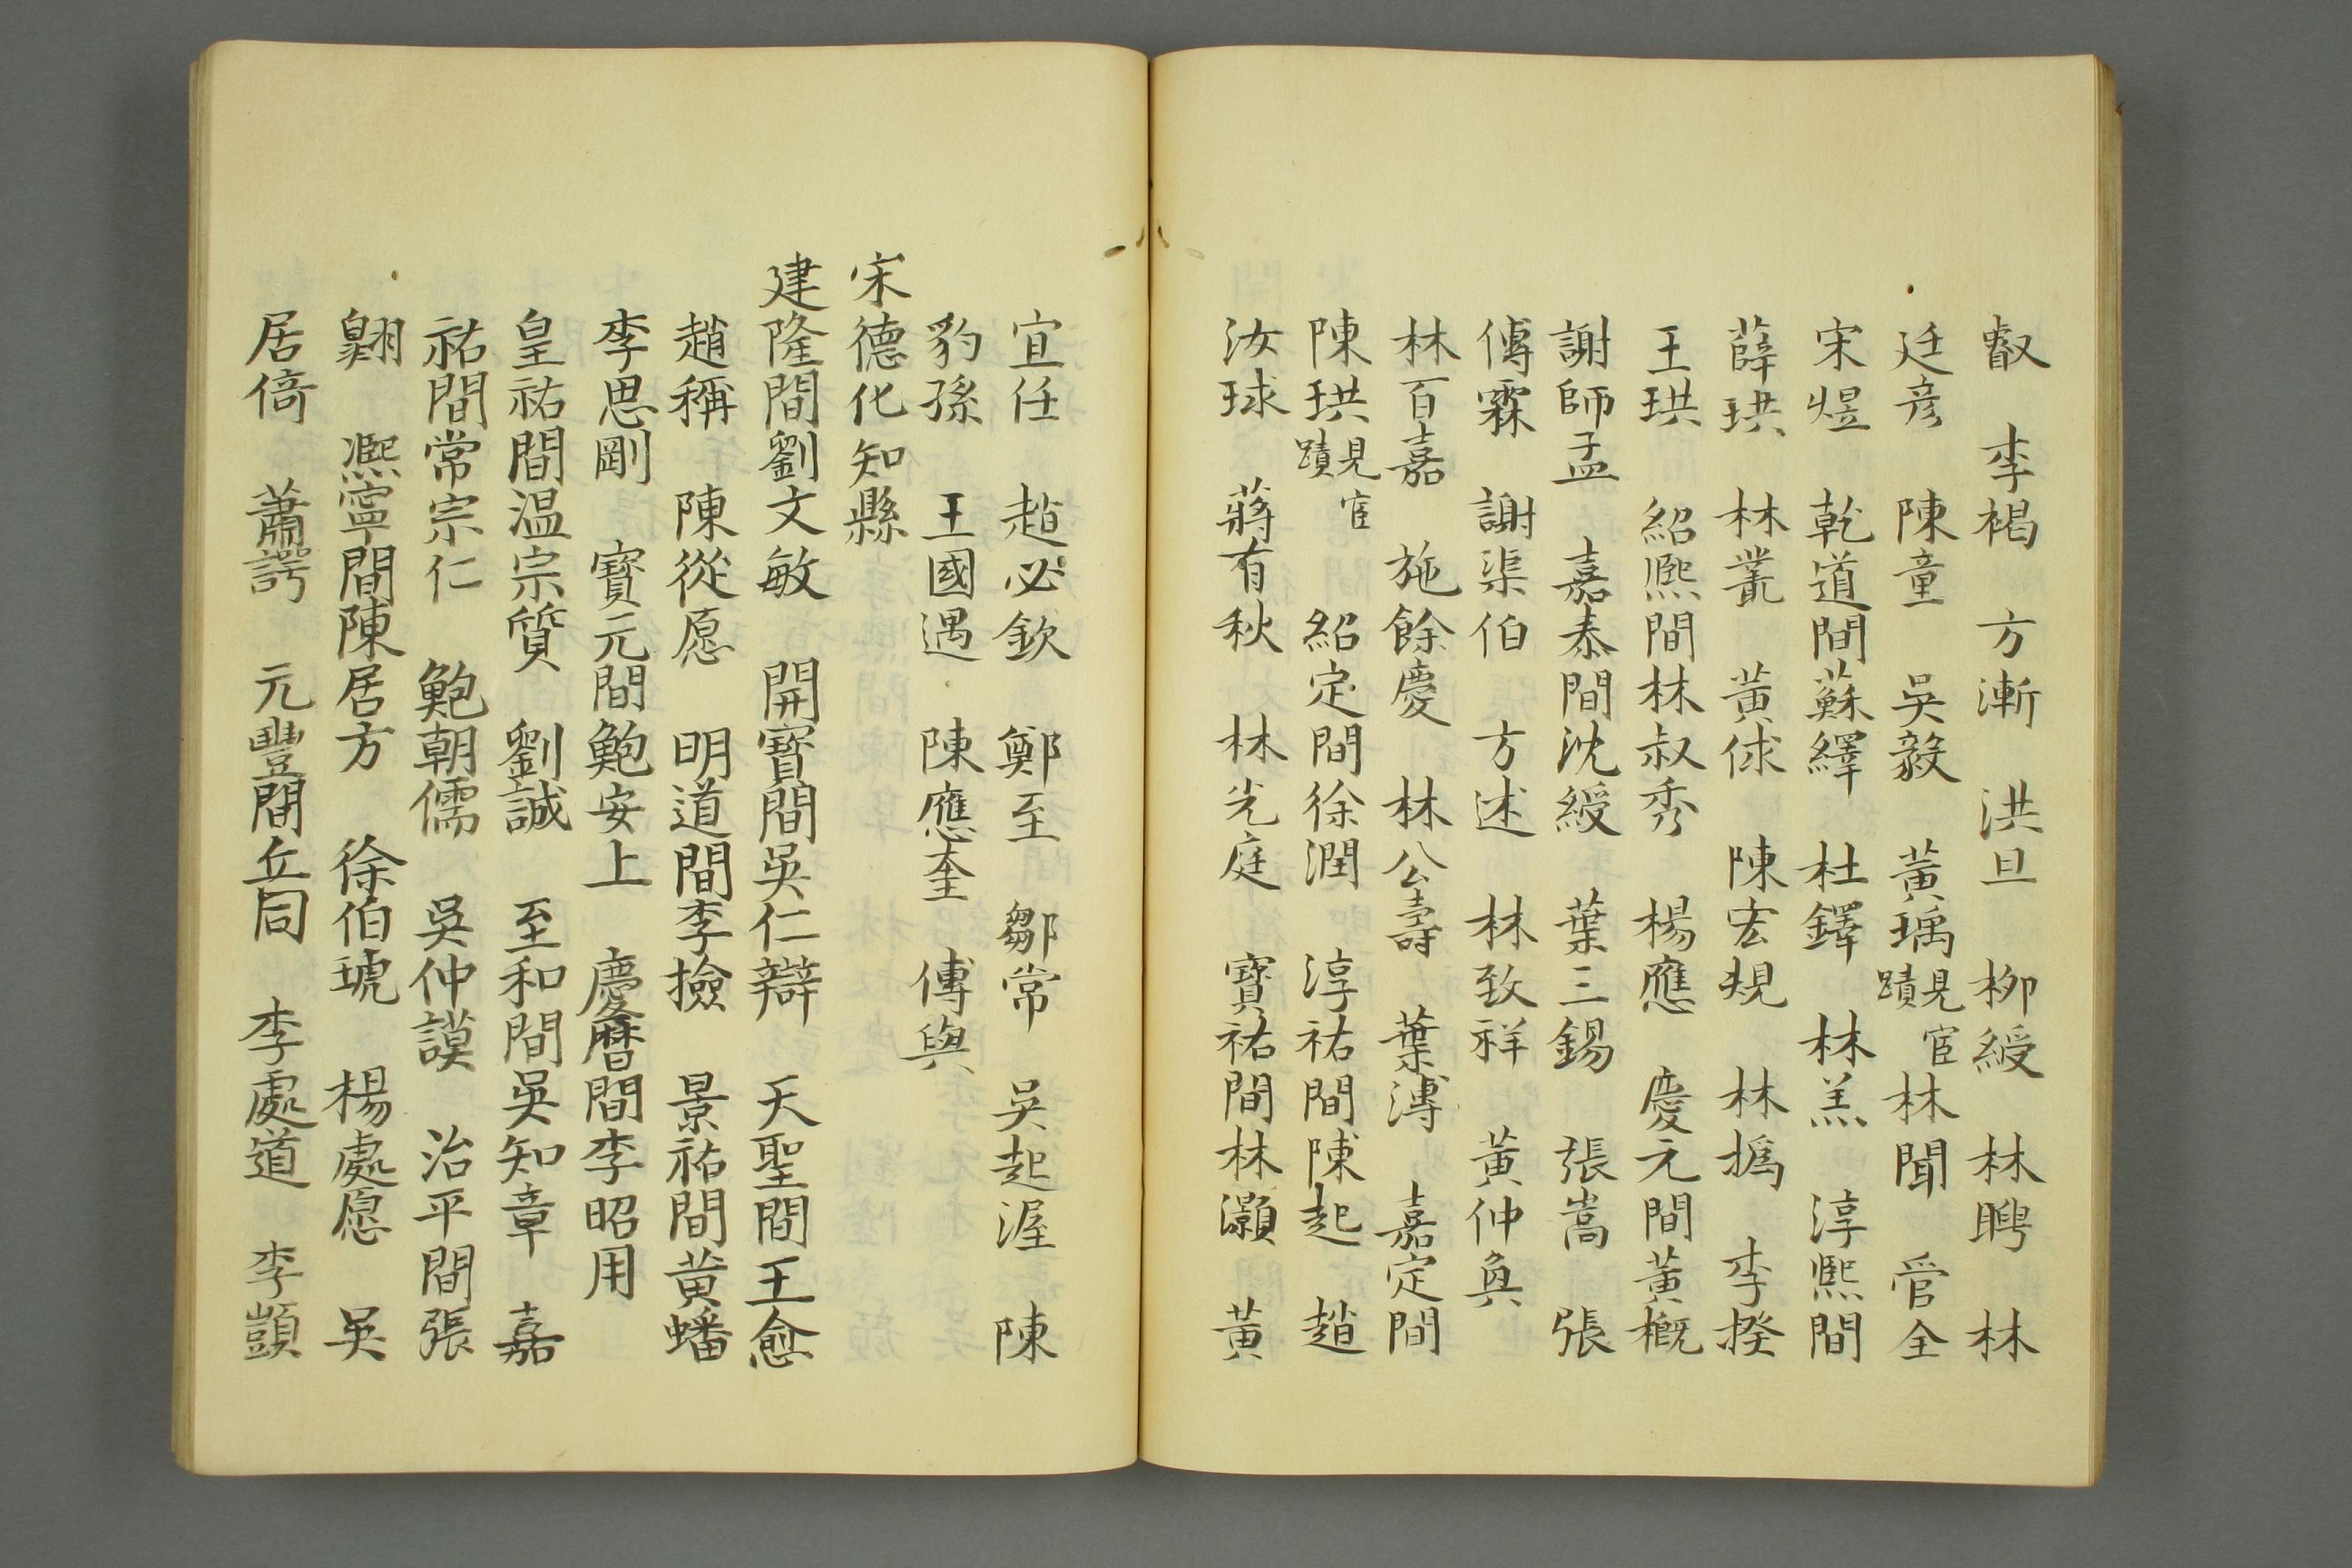 叡　李褐　方漸　洪旦　柳綬　林聘　林
廷彥　陳童　吳毅　黃瑀見宦蹟　林聞　管全
宋煜　乾道間蘇繹　杜鐸　林羔　淳熙間
薛珙　林叢　黃俅　陳宏規　林撝　李揆
王珙　紹熙間林叔秀　楊應　慶元間黃概
謝師孟　嘉泰間沈綬　葉三錫　張嵩　張
傅霖　謝渠伯　方述　林致祥　黃仲奐
林百嘉　施餘慶　林公壽　葉溥　嘉定間
陳珙見宦蹟　紹定間徐潤　淳祐間陳起　趙
汝球　蔣有秋　林光庭　寶祐間林灝　黃
宜任　趙必欽　鄭至　鄒常　吳起渥　陳
豹孫　王國遇　陳應奎　傅與
宋德化知縣
建隆間劉文敏　開寶間吳仁辯　天聖間王愈
趙稱　陳從愿　明道間李撿　景祐間黃蟠
李思剛　寶元間鮑安上　慶曆間李昭用
皇祐間溫宗質　劉誠　至和間吳知章　嘉
祐間常宗仁　鮑朝儒　吳仲謨　治平間張
翺　熙寧間陳居方　徐伯琥　楊處愿　吳
居倚　蕭諤　元豐間丘同　李處道　李顗